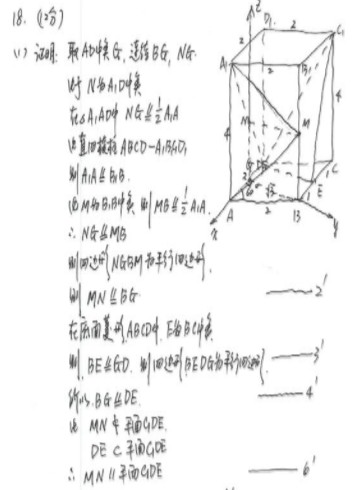 18. (12分)
(1) 证明: 取AD中点G, 连结BG, NG.
由于N为A₁D中点
在△A₁AD中 NG⫽½A₁A
由直四棱柱ABCD-A₁B₁C₁D₁
则A₁A⫽B₁B.
由M为B₁B中点 则MB⫽½A₁A.
∴ NG⫽MB
则四边形NGBM为平行四边形.
则 MN⫽BG —— 2'
在底面菱形ABCD中, E为BC中点
则 BE⫽GD. 则四边形BEDG为平行四边形. —— 3'
所以 BG⫽DE. —— 4'
由 MN⊄平面C₁DE
DE⊂平面C₁DE
∴ MN∥平面C₁DE —— 6'
z
D₁
2
C₁
A₁
2
B₁
4
4
N
M
G
D
C
E
60°
√3
A
2
B
x
y